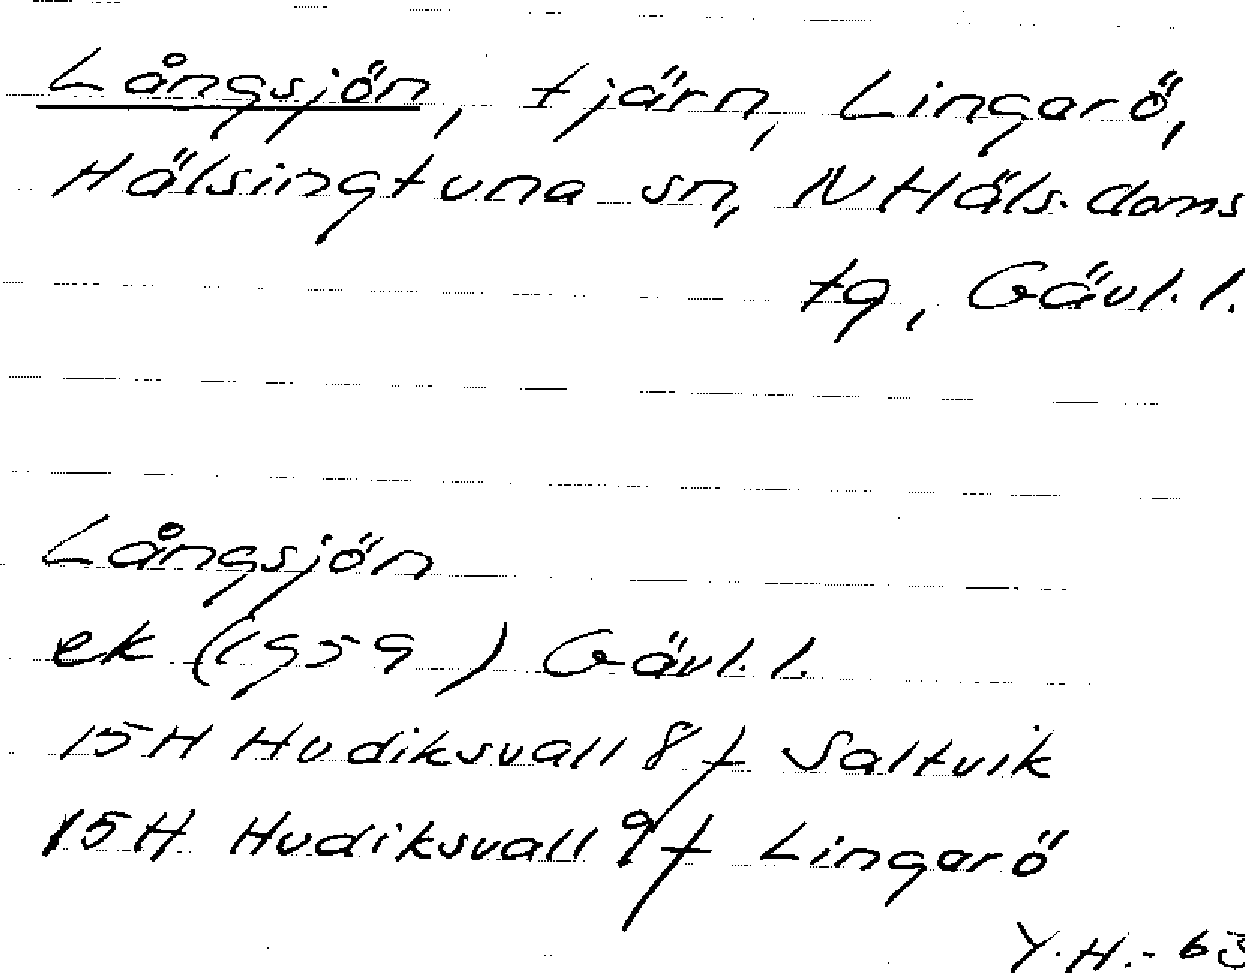 Långsjön, tjärn, Lingarö,
Hälsingtuna sn, N Häls. doms
tg, Gävl. l.
Långsjön
ek (1959) Gävl. l.
15H Hudiksvall 8f Saltvik
15H Hudiksvall 9f Lingarö
Y.H.- 63